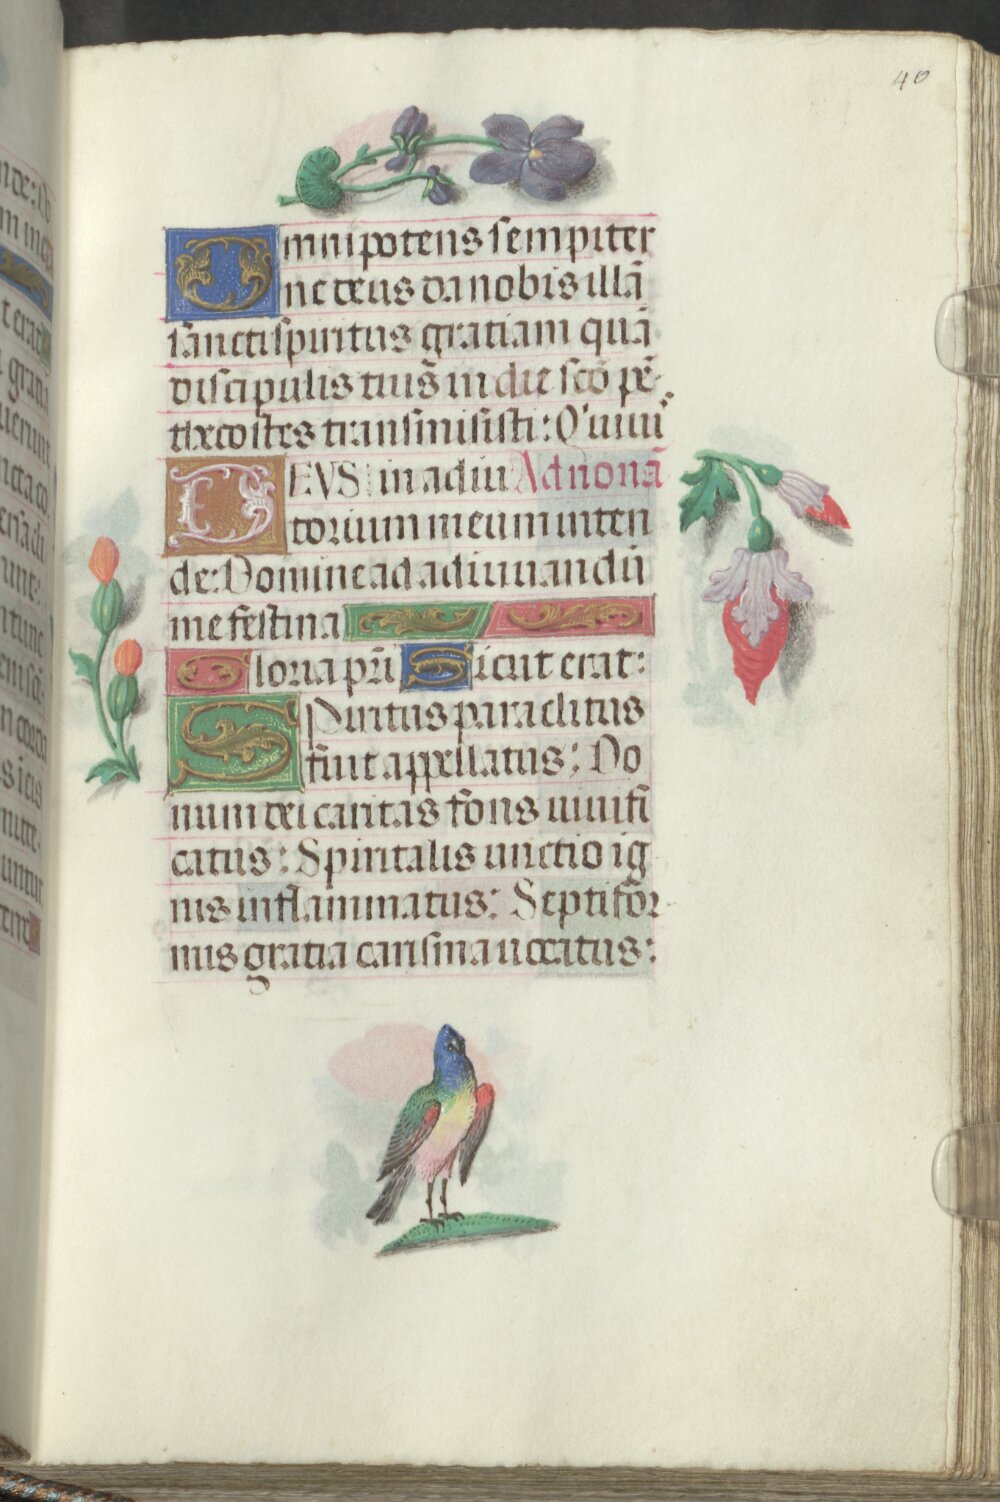 40
Omnipotens sempiter
ne deus da nobis illã
sancti spiritus gratiam quã
discipulis tuis in die sc̃o pẽ
thecostes transmisisti: Qui uiu
DEVS in adiu Ad nonã
torium meum inten
de: Domine ad adiuuandũ
me festina
Gloria pr̃i Sicut erat:
Spiritus paraclitus
fuit appellatus: Do
num dei caritas fons uiuifi
catus: Spiritalis unctio ig
nis inflammatus: Septifor
mis gratia carisma uocatus: